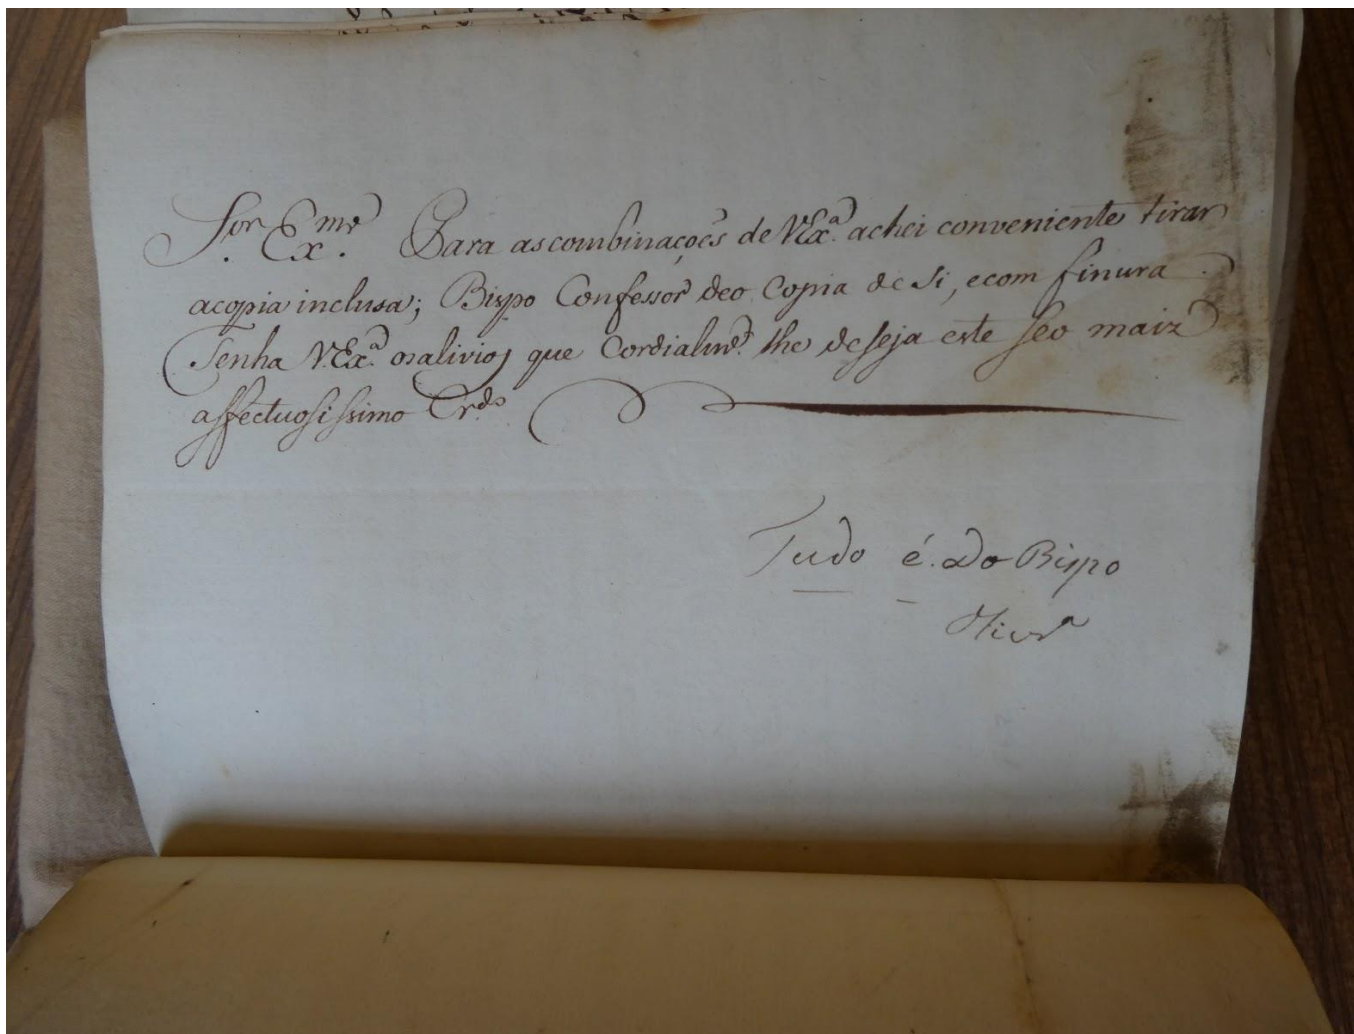 Sor. Exmo. Para as combinaçoẽs de VExa. achei conveniente tirar
a copia inclusa; Bispo Confessor deo Copia de si, e com finura.
Tenha VExa. os alivios, que Cordialmte. lhe deseja este seo maiz
affectuosissimo Crdo.
Tudo é. Do Bispo